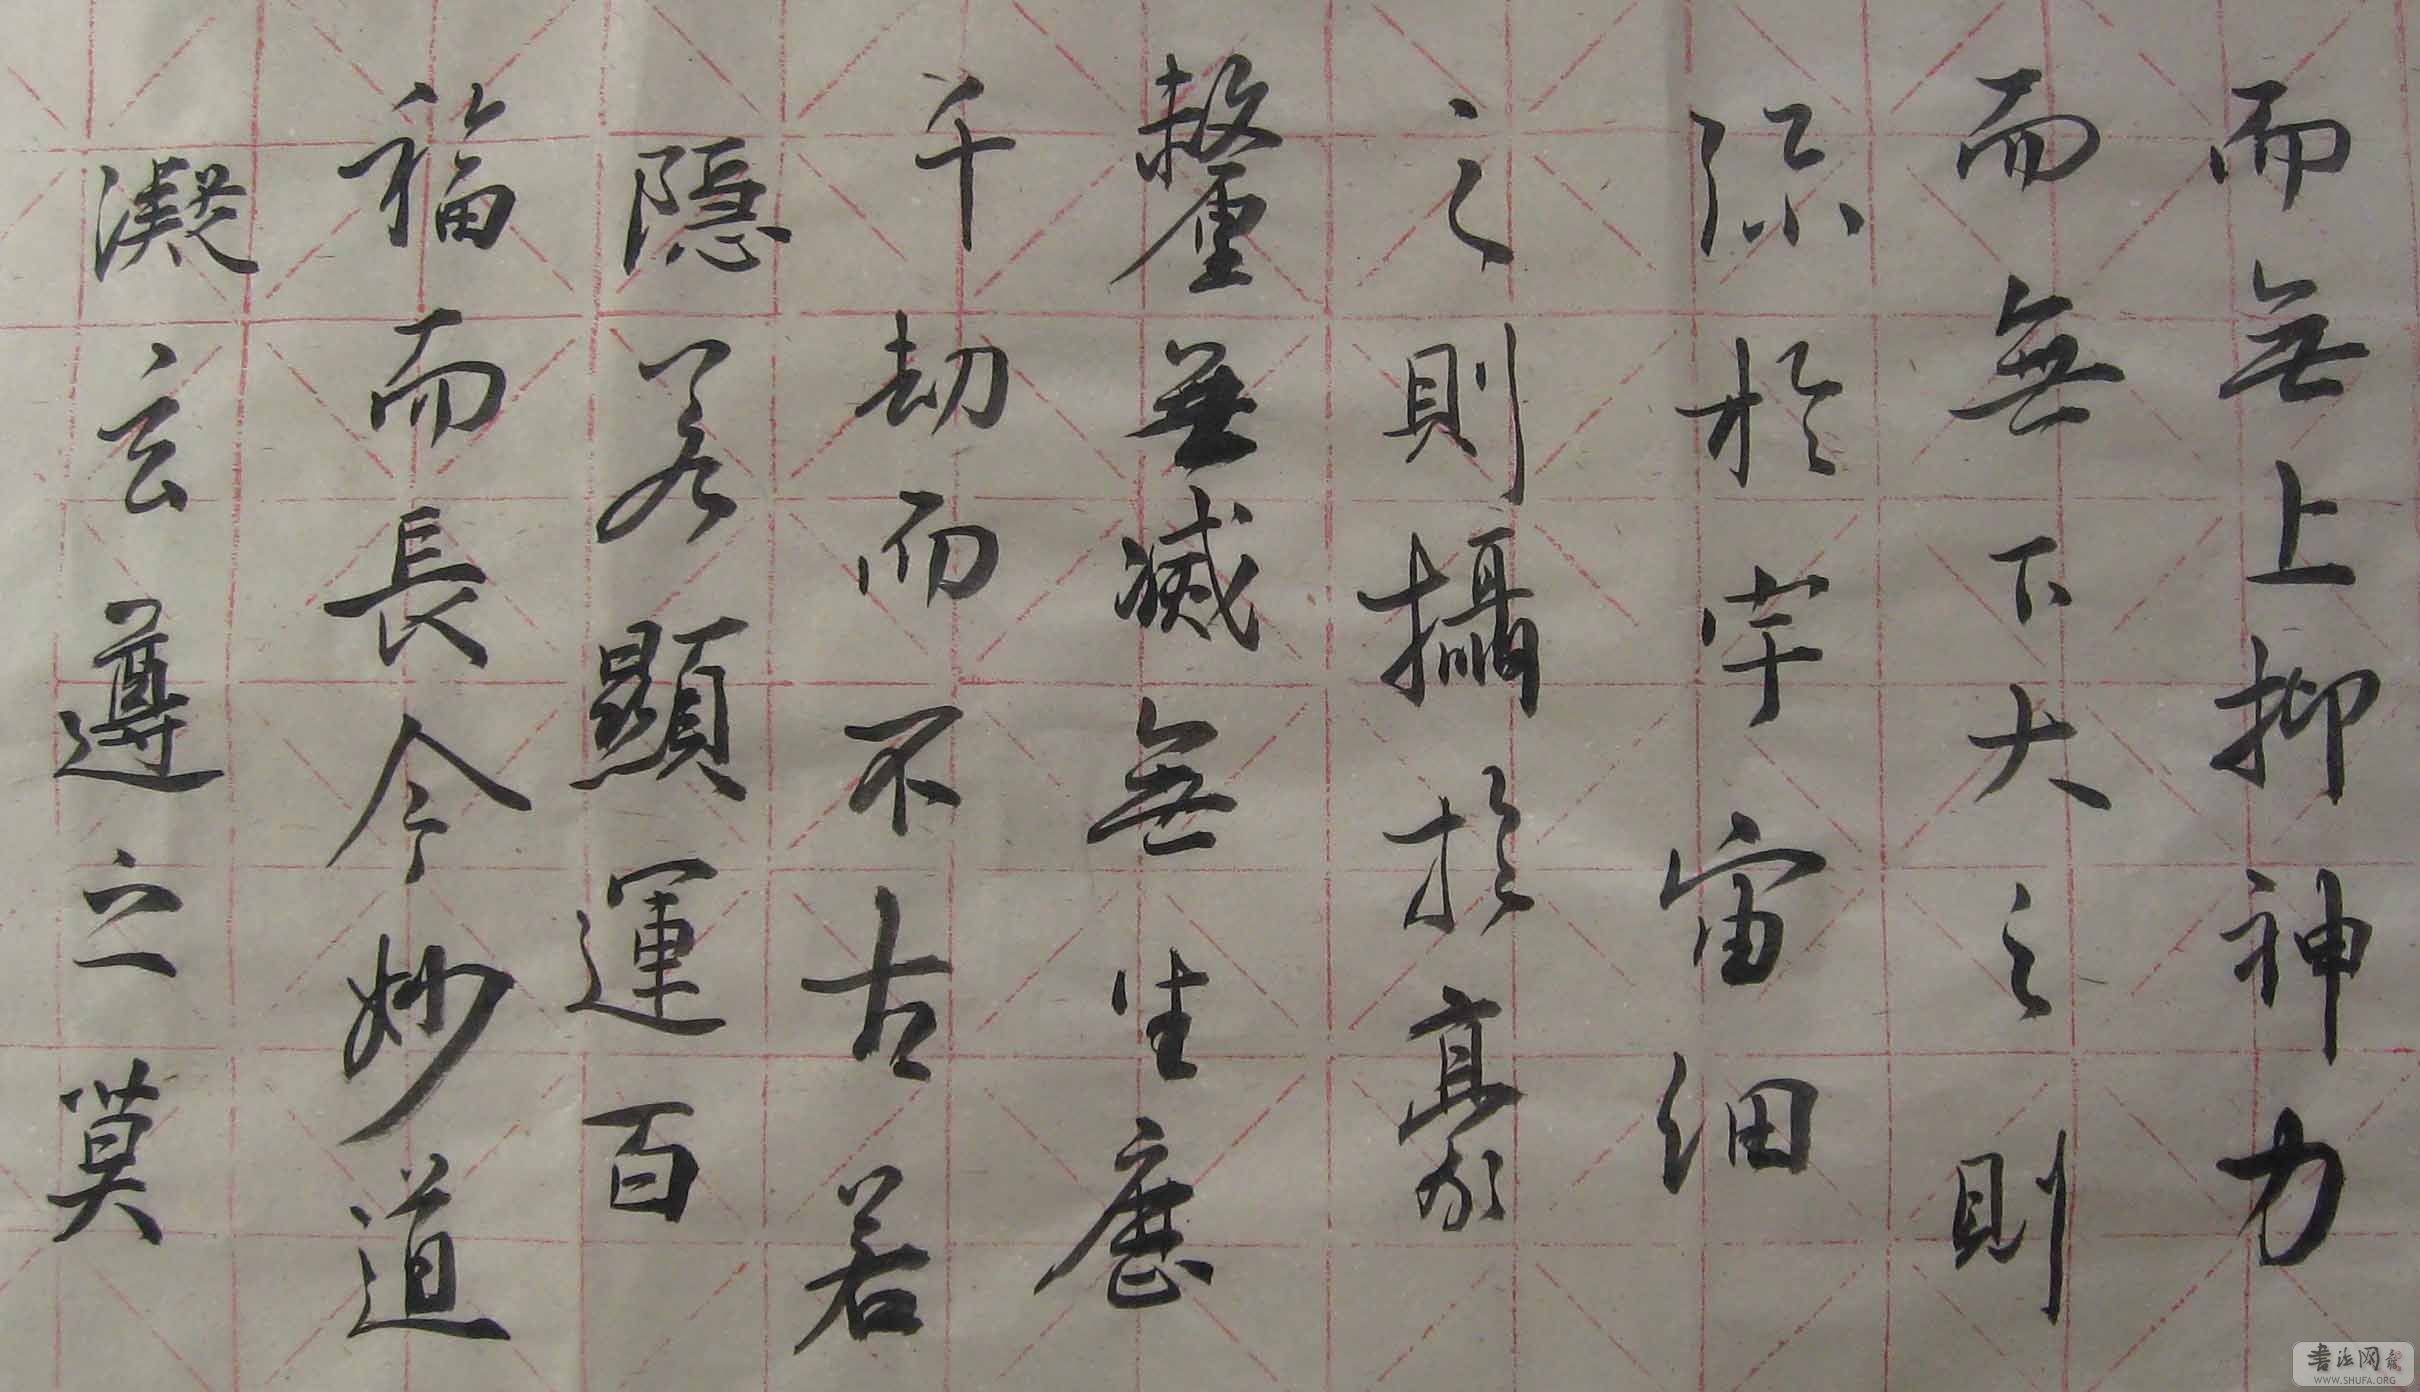 而無上抑神力
而無下大之則
弥於宇宙細
之則攝於豪
釐無滅無生歷
千劫而不古若
隱若顯運百
福而長今妙道
凝玄遵之莫
書法网
WWW.SHUFA.ORG